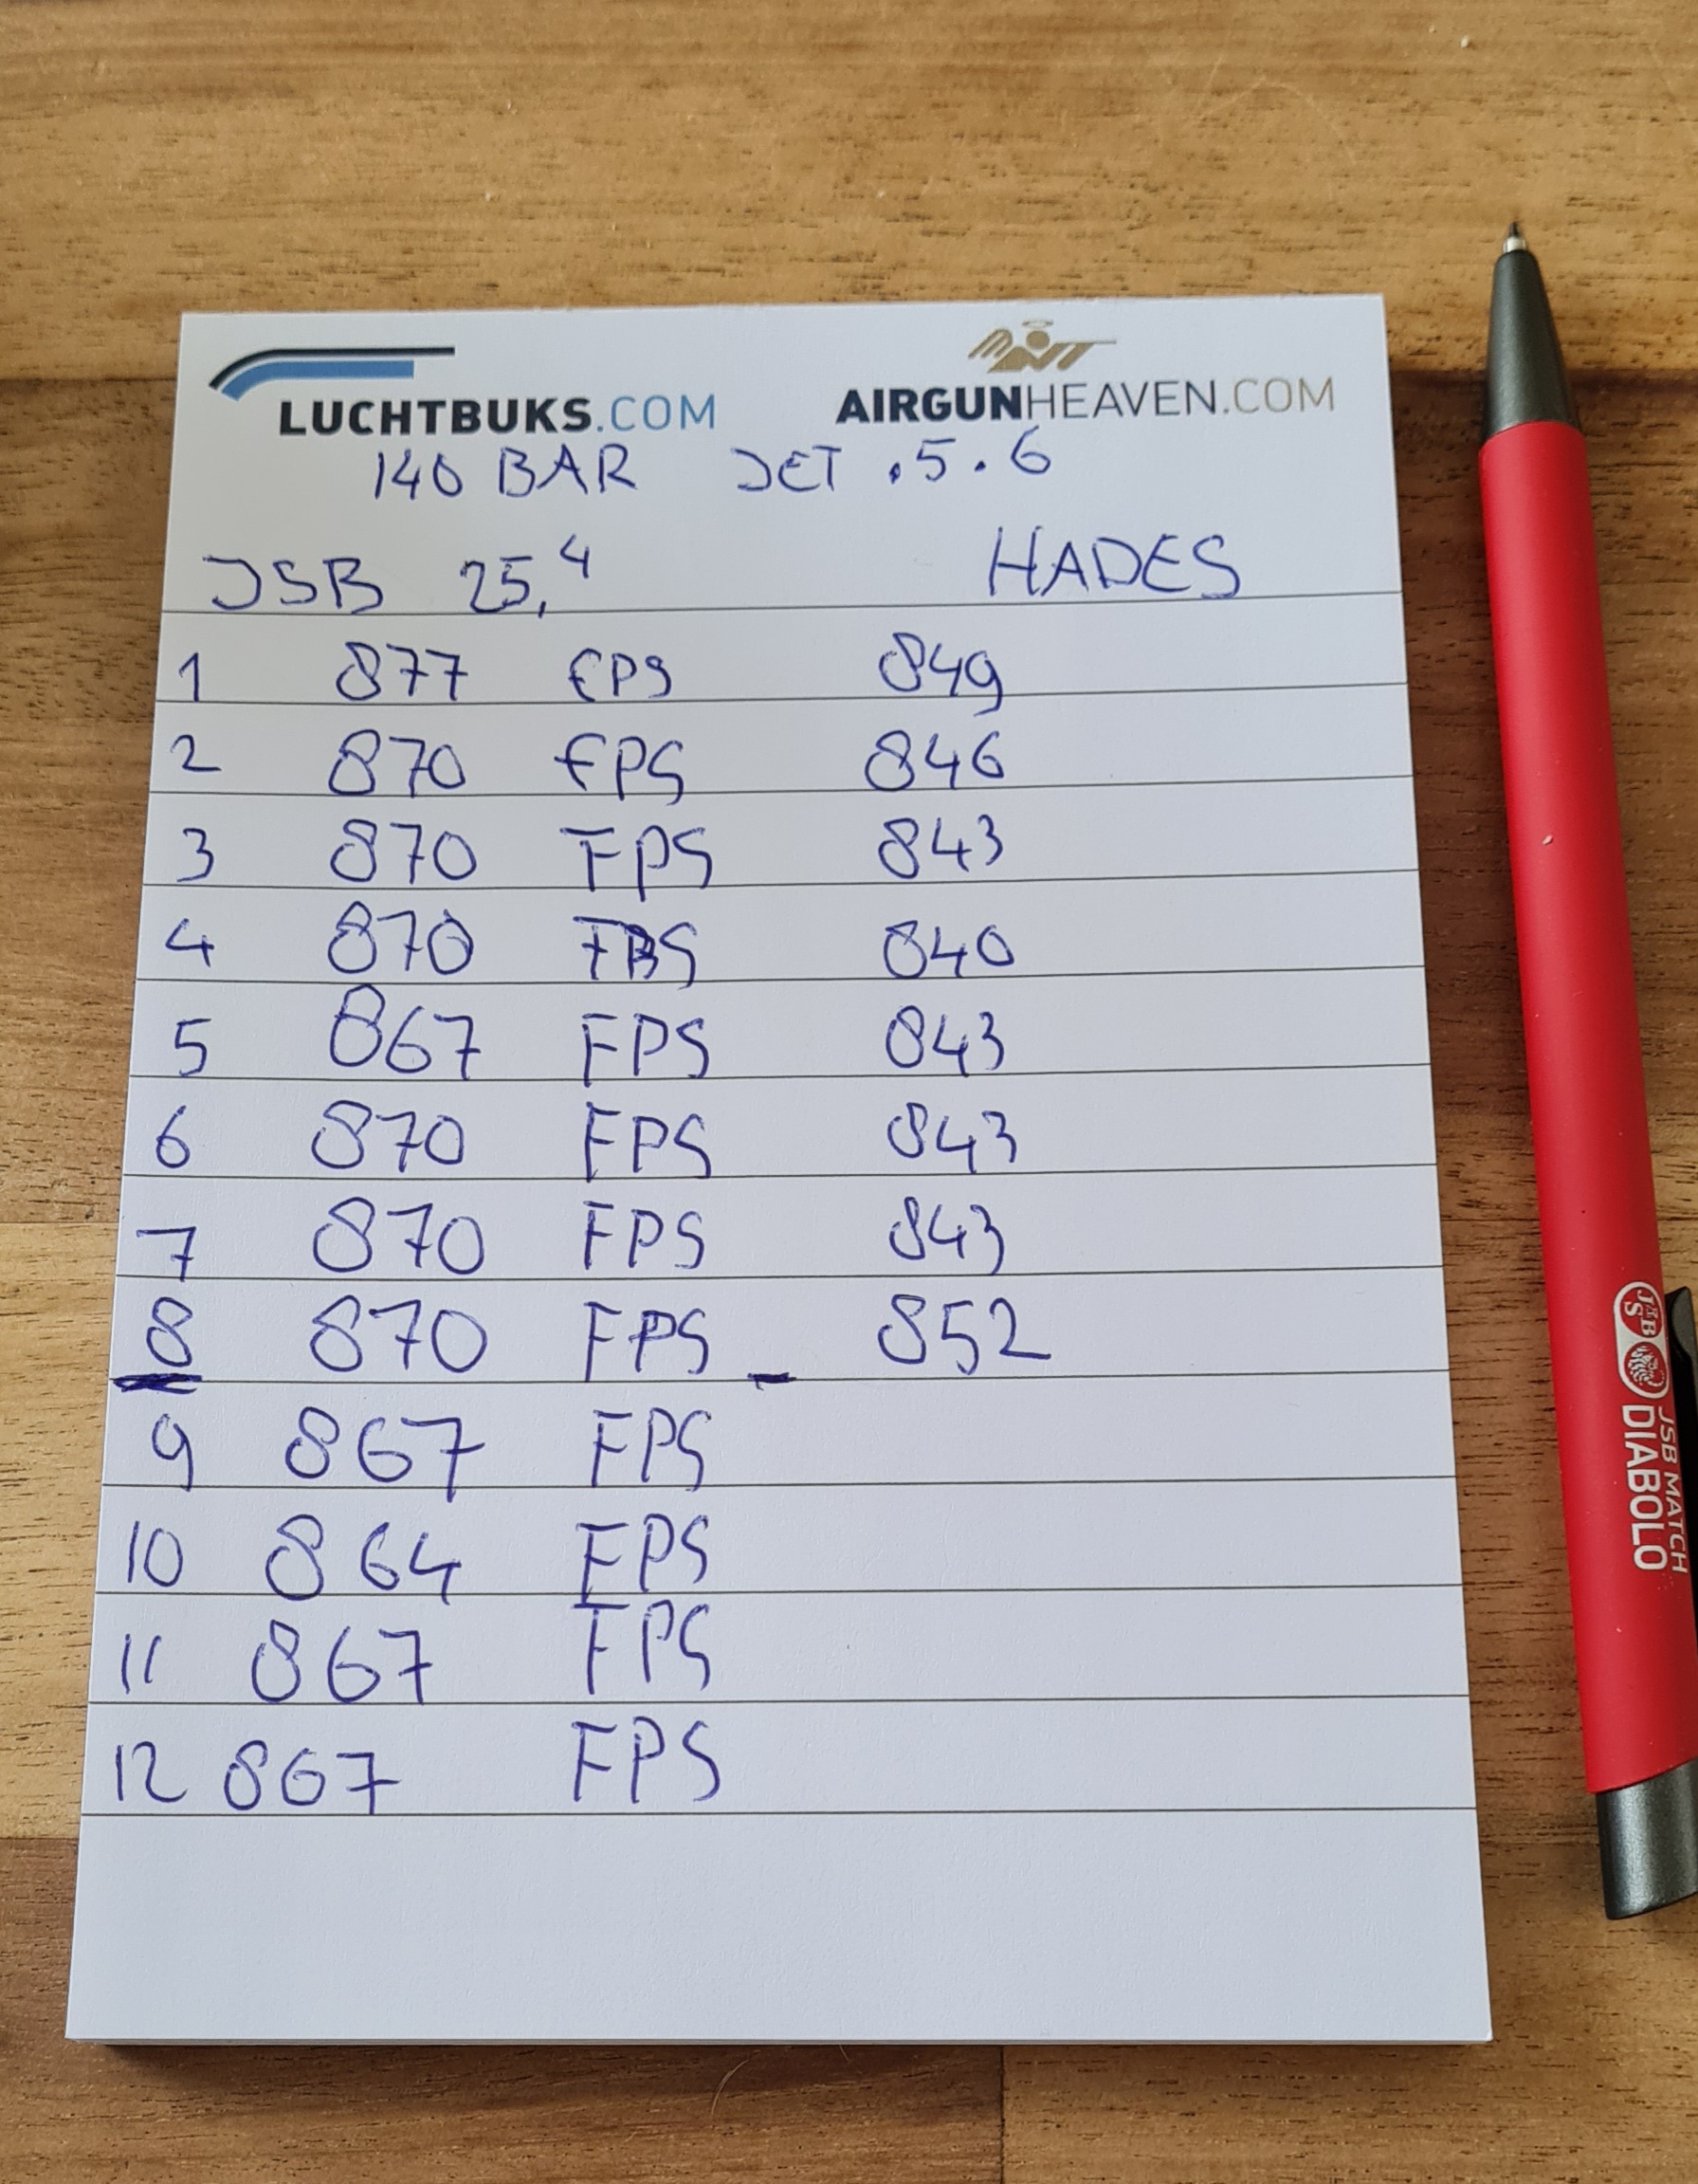 LUCHTBUKS.COM AIRGUNHEAVEN.COM
140 BAR JET .5.6
JSB 25,4 HADES
1 877 FPS 849
2 870 FPS 846
3 870 FPS 843
4 870 FPS 840
5 867 FPS 843
6 870 FPS 843
7 870 FPS 843
8 870 FPS 852
9 867 FPS
10 864 FPS
11 867 FPS
12 867 FPS
JSB
JSB MATCH
DIABOLO